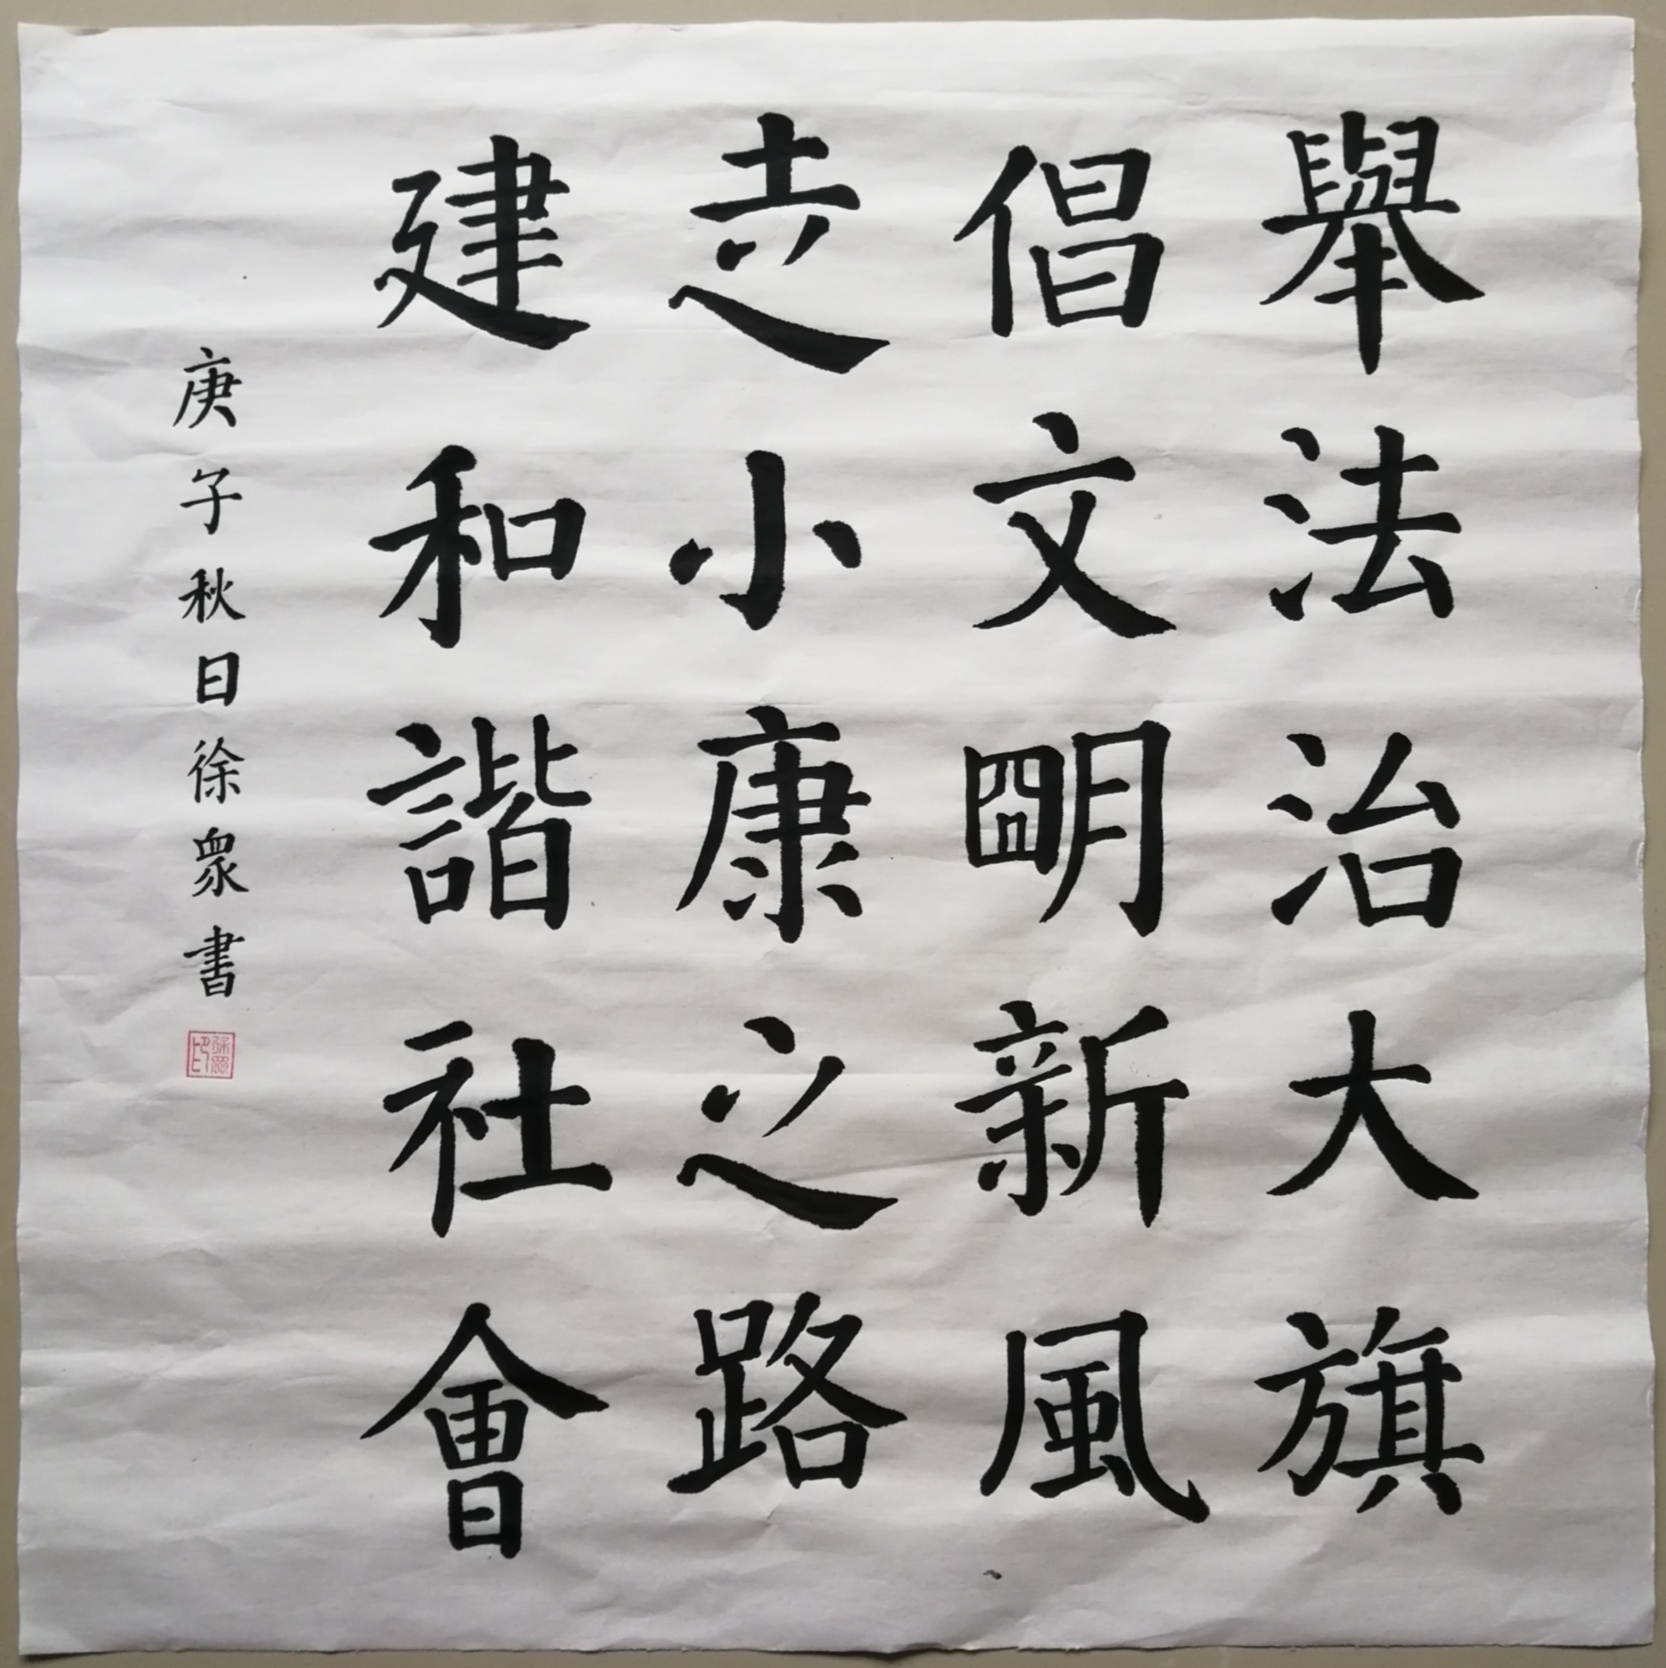 舉法治大旗
倡文朙新風
走小康之路
建和諧社會
庚子秋日徐衆書
徐眾印